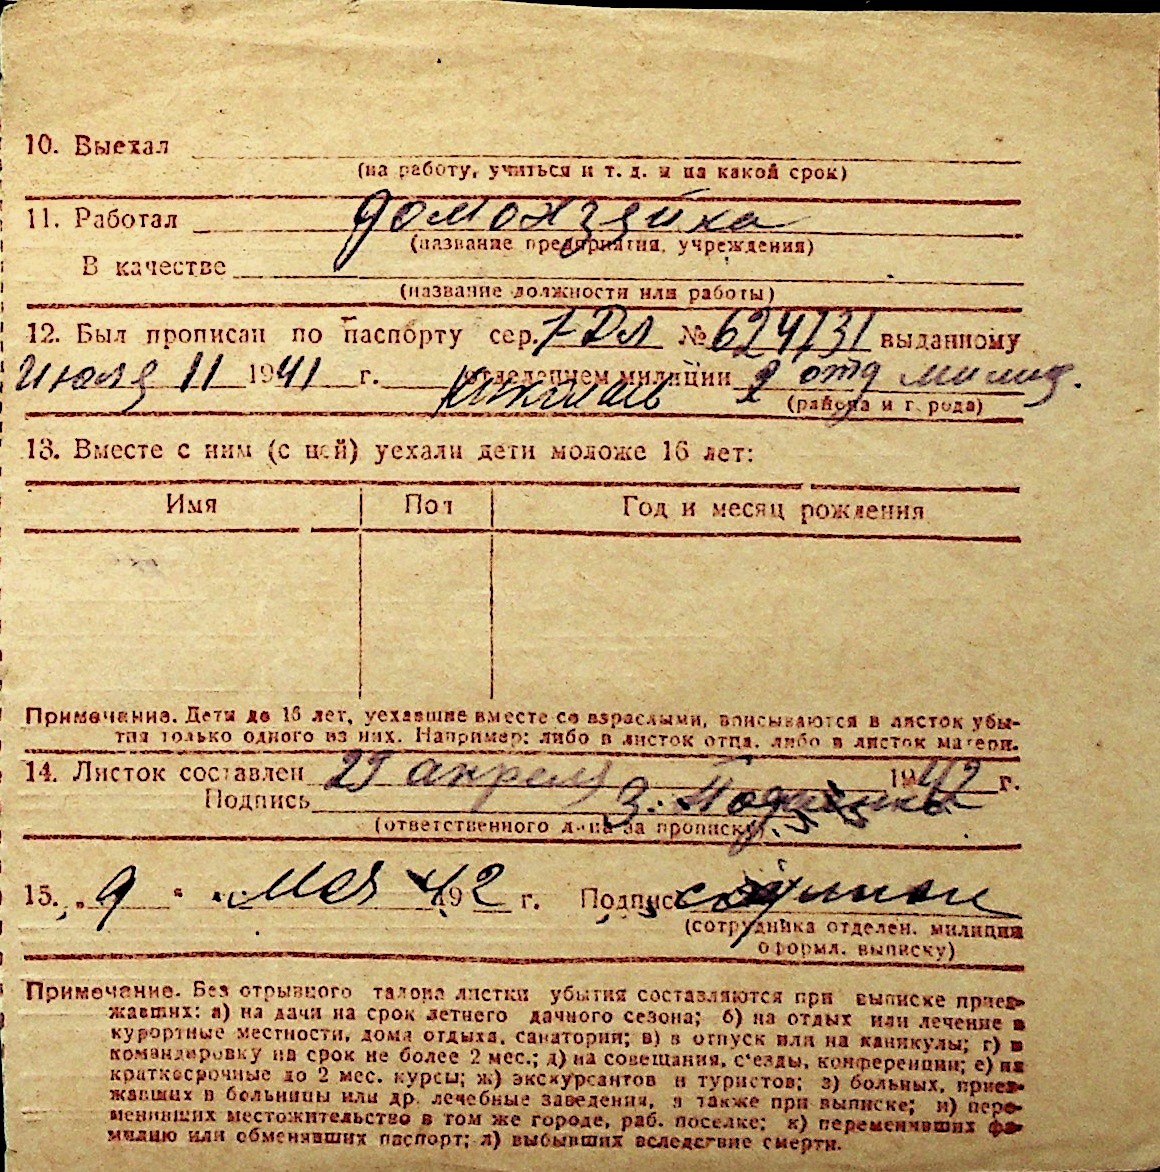 10. Выехал
(на работу, учиться и т. д. и на какой срок)
11. Работал домохзяйка
(название предприятия, учреждения)
В качестве
(название должности или работы)
12. Был прописан по паспорту сер. № 624731 выданному
июля 11 1941 г. отделением милиции 2 отд милиц.
(района и города)
13. Вместе с ним (с ней) уехали дети моложе 16 лет:
Имя Пол Год и месяц рождения
Примечание. Дети до 16 лет, уехавшие вместе со взрослыми, вписываются в листок убы-
тия только одного из них. Например: либо в листок отца, либо в листок матери.
14. Листок составлен 29 апреля 1942 г.
Подпись
(ответственного лица за прописку)
15. „ 9 “ Мая 1942 г. Подпись
(сотрудника отделен. милиции
оформл. выписку)
Примечание. Без отрывного талона листки убытия составляются при выписке приез-
жавших: а) на дачи на срок летнего дачного сезона; б) на отдых или лечение в
курортные местности, дома отдыха, санатории; в) в отпуск или на каникулы; г) в
командировку на срок не более 2 мес.; д) на совещания, с'езды, конференции; е) на
краткосрочные до 2 мес. курсы; ж) экскурсантов и туристов; з) больных, приез-
жавших в больницы или др. лечебные заведения, а также при выписке; и) пере-
менивших местожительство в том же городе, раб. поселке; к) переменивших фа-
милию или обменявших паспорт; л) выбывших вследствие смерти.